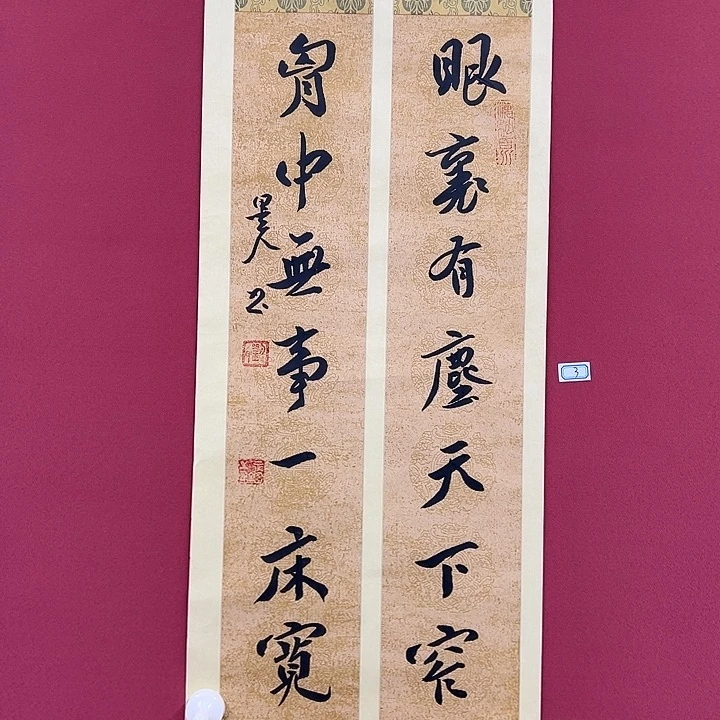 眼裏有塵天下窄
胷中無事一床寬
3